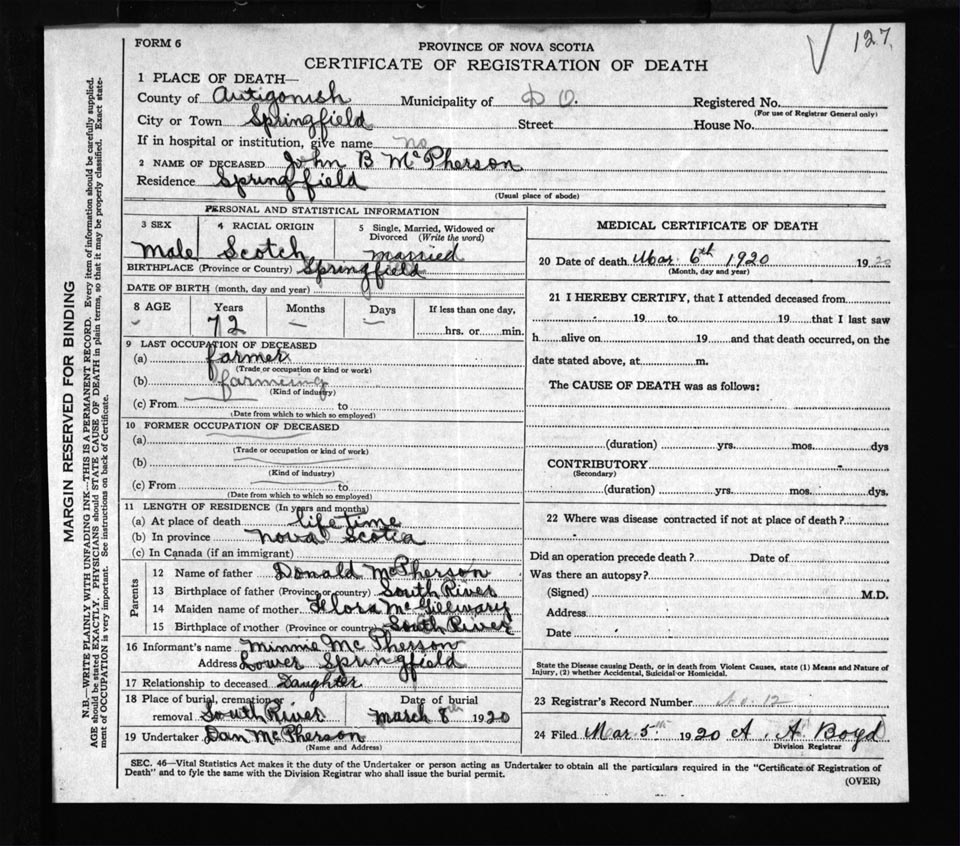 FORM 6
127
PROVINCE OF NOVA SCOTIA
CERTIFICATE OF REGISTRATION OF DEATH
1 PLACE OF DEATH—
County of Antigonish Municipality of Registered No.
(For use of Registrar General only)
City or Town Springfield Street House No.
If in hospital or institution, give name no
2 NAME OF DECEASED John B McPherson
Residence Springfield
(Usual place of abode)
PERSONAL AND STATISTICAL INFORMATION
3 SEX 4 RACIAL ORIGIN 5 Single, Married, Widowed or Divorced (Write the word)
Male Scotch married
BIRTHPLACE (Province or Country) Springfield
DATE OF BIRTH (month, day and year)
8 AGE Years Months Days If less than one day,
72 — — hrs. or min.
9 LAST OCCUPATION OF DECEASED
(a) farmer
(Trade or occupation or kind or work)
(b) farmeing
(Kind of industry)
(c) From to
(Date from which to which so employed)
10 FORMER OCCUPATION OF DECEASED
(a)
(Trade or occupation or kind of work)
(b)
(Kind of industry)
(c) From to
(Date from which to which so employed)
11 LENGTH OF RESIDENCE (In years and months)
(a) At place of death life time
(b) In province nova Scotia
(c) In Canada (if an immigrant)
Parents
12 Name of father Donald McPherson
13 Birthplace of father (Province or country) South River
14 Maiden name of mother Flora McGillivary
15 Birthplace of mother (Province or country) South River
16 Informant's name Minnie Mc Pherson
Address Lower Springfield
17 Relationship to deceased Daughter
18 Place of burial, cremation or removal South River Date of burial March 8th 1920
19 Undertaker Dan McPherson
(Name and Address)
MEDICAL CERTIFICATE OF DEATH
20 Date of death Mar. 6th 1920 1920
(Month, day and year)
21 I HEREBY CERTIFY, that I attended deceased from
19 to 19 that I last saw
h alive on 19 and that death occurred, on the
date stated above, at m.
The CAUSE OF DEATH was as follows:
(duration) yrs. mos. dys
CONTRIBUTORY
(Secondary)
(duration) yrs. mos. dys.
22 Where was disease contracted if not at place of death?
Did an operation precede death? Date of
Was there an autopsy?
(Signed) M.D.
Address
Date
State the Disease causing Death, or in death from Violent Causes, state (1) Means and Nature of
Injury, (2) whether Accidental, Suicidal or Homicidal.
23 Registrar's Record Number No. 12
24 Filed Mar. 5th 1920 A. A Boyd
Division Registrar
SEC. 46—Vital Statistics Act makes it the duty of the Undertaker or person acting as Undertaker to obtain all the particulars required in the "Certificate of Registration of
Death" and to fyle the same with the Division Registrar who shall issue the burial permit.
(OVER)
MARGIN RESERVED FOR BINDING
N.B.—WRITE PLAINLY WITH UNFADING INK—THIS IS A PERMANENT RECORD. Every item of information should be carefully supplied.
AGE should be stated EXACTLY. PHYSICIANS should STATE CAUSE OF DEATH in plain terms, so that it may be properly classified. Exact state-
ment of OCCUPATION is very important. See instructions on back of Certificate.